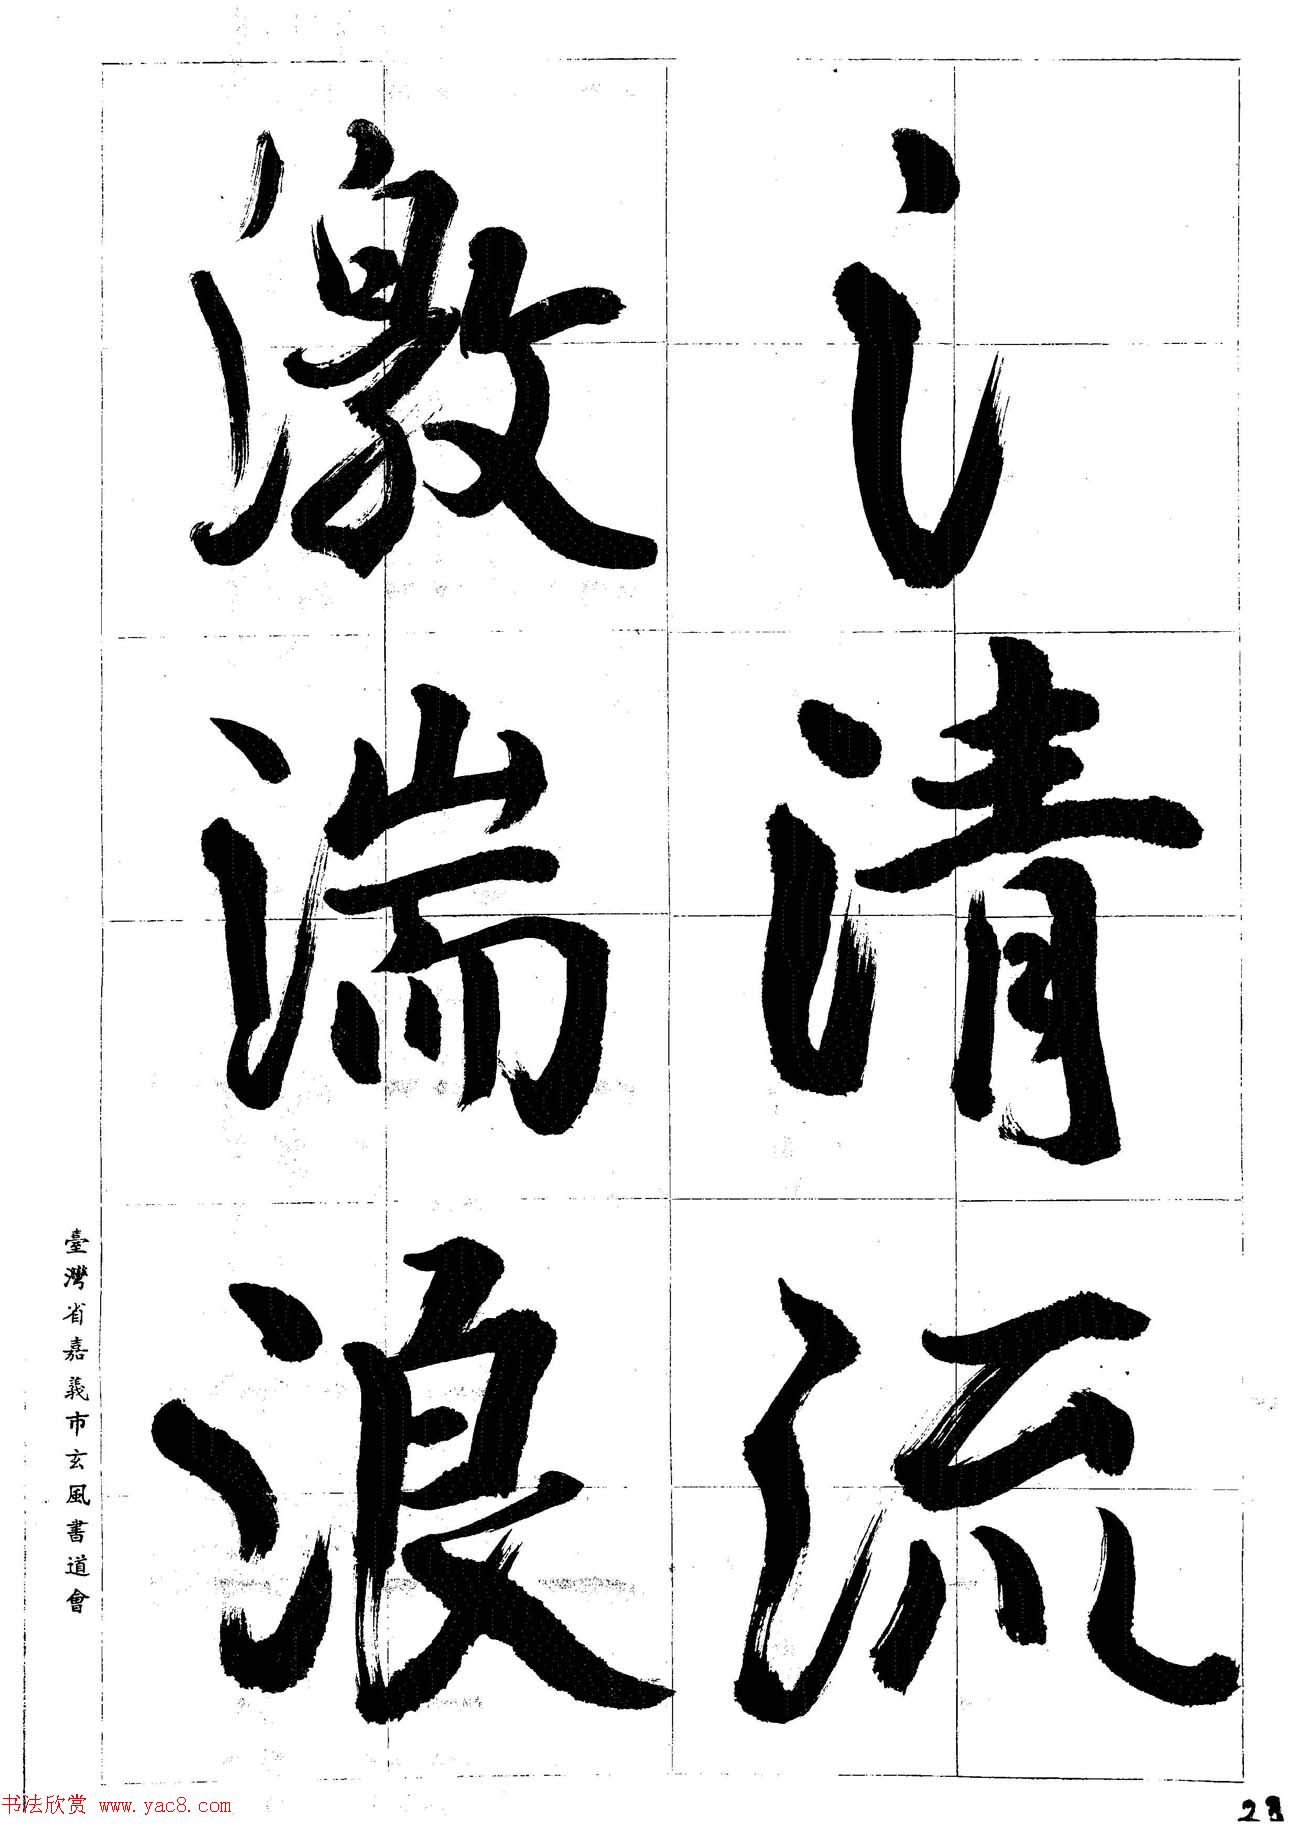 氵清流
激湍浪
臺灣省嘉義市玄風書道會
书法欣赏 www.yac8.com